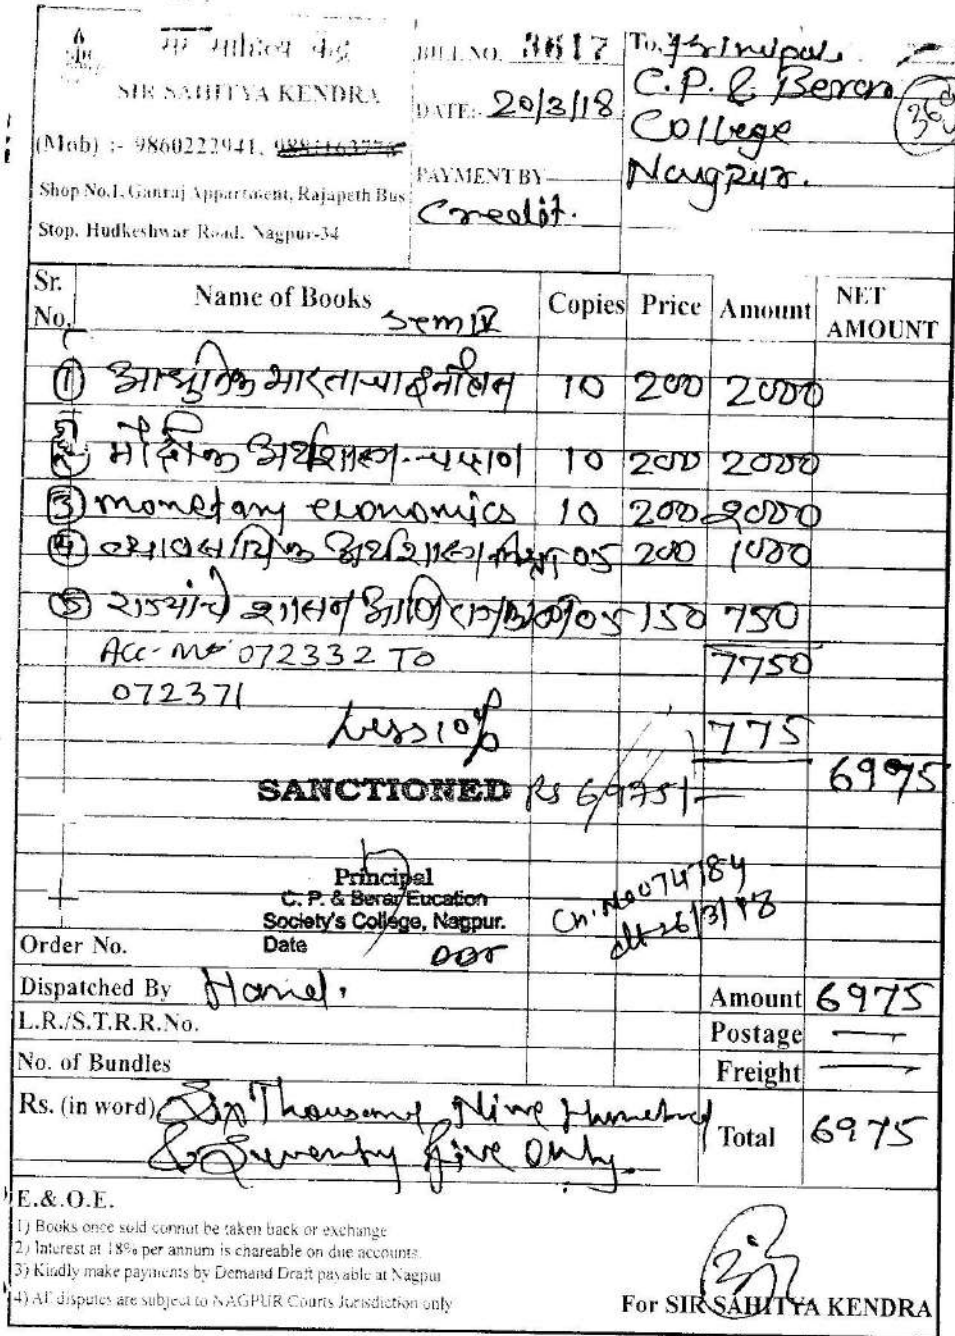 SIR SAHITYA KENDRA
(Mob) :- 9860222941,
Shop No.1, Ganraj Appartment, Rajapeth Bus
Stop, Hudkeshwar Road, Nagpur-34
BILL NO. 3617
DATE: 20/3/18
PAYMENT BY
Credit.
To, Principal
C.P. & Berar
College
Nagpur.
36
Sr. No. Name of Books Copies Price Amount NET AMOUNT
Sem IV
① आधुनिक भारताचा 10 200 2000
② मौद्रीक अर्थशास्त्र 10 200 2000
③ monetary economics 10 200 2000
④ व्यावसायिक अर्थशास्त्र 05 200 1000
⑤ राज्यांचे शासन आणि 05 150 750
Acc- No 072332 TO 7750
072371
Less 10% 775
6975
SANCTIONED Rs 6975/-
Principal
C. P. & Berar Eucation
Society's College, Nagpur.
Date
Ch. No 074784
dt 26/3/18
Order No.
Dispatched By Hand. Amount 6975
L.R./S.T.R.R.No. Postage —
No. of Bundles Freight —
Rs. (in word) Six Thousand Nine Hundred
& Seventy five only
Total 6975
E.&.O.E.
1) Books once sold connot be taken back or exchange
2) Interest at 18% per annum is chareable on due accounts.
3) Kindly make payments by Demand Draft payable at Nagpur
4) All disputes are subject to NAGPUR Courts Jurisdiction only
For SIR SAHITYA KENDRA